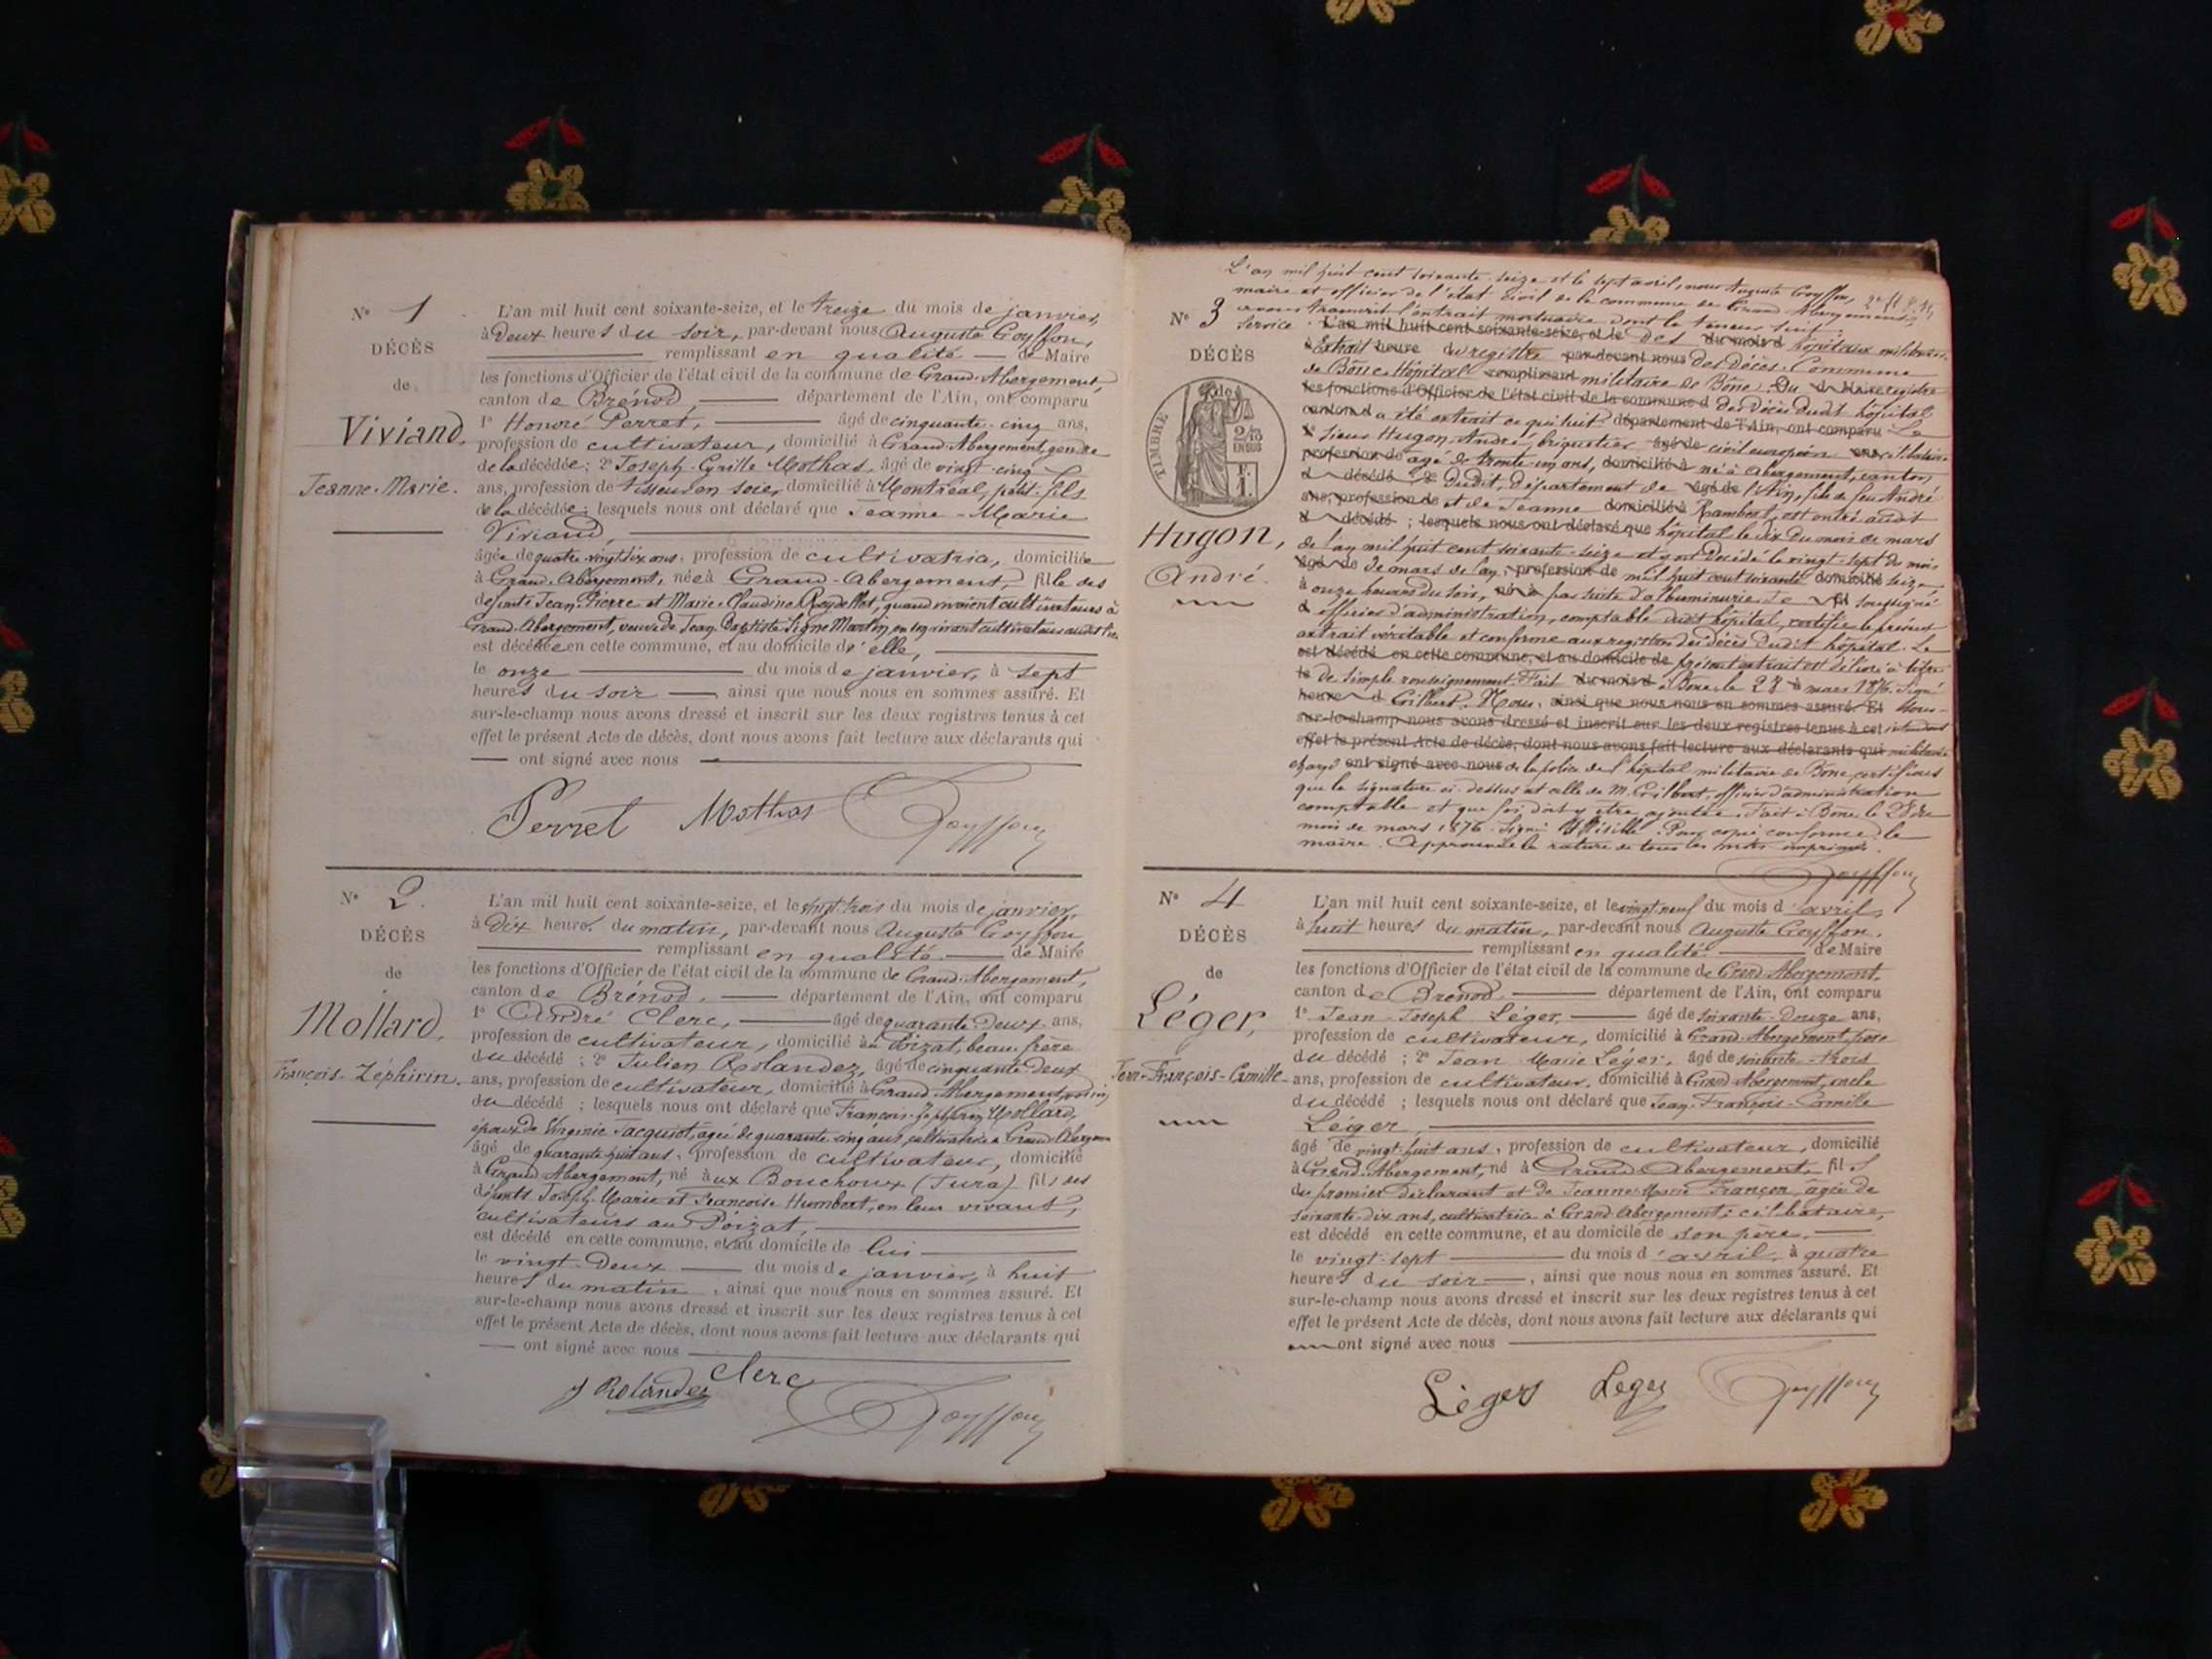 N° 1
DÉCÈS
de
Viviand,
Jeanne-Marie.
L'an mil huit cent soixante-seize, et le treize du mois de janvier,
à Deux heures du soir, par-devant nous Auguste Goyffon,
remplissant en qualité de Maire
les fonctions d'Officier de l'état civil de la commune de Grand-Abergement,
canton de Brénod, département de l'Ain, ont comparu
1° Honoré Perret, âgé de cinquante-cinq ans,
profession de cultivateur, domicilié à Grand-Abergement, gendre
de la décédée; 2° Joseph-Cyrille Mathas, âgé de vingt-cinq
ans, profession de tisseur en soie, domicilié à Montréal, petit-fils
de la décédée; lesquels nous ont déclaré que Jeanne-Marie
Viviand,
âgée de quatre-vingt-dix ans, profession de cultivatrice, domiciliée
à Grand-Abergement, née à Grand-Abergement, fille des
défunts Jean Pierre et Marie-Claudine Reydellet, quand vivaient cultivateurs à
Grand-Abergement, veuve de Jean Baptiste Martin, en son vivant cultivateur audit lieu
est décédée en cette commune, et au domicile d'elle,
le onze du mois de janvier, à sept
heures du soir ainsi que nous nous en sommes assuré. Et
sur-le-champ nous avons dressé et inscrit sur les deux registres tenus à cet
effet le présent Acte de décès, dont nous avons fait lecture aux déclarants qui
ont signé avec nous
Perret Mathas Goyffon
N° 2.
DÉCÈS
de
Mollard,
François-Zéphirin.
L'an mil huit cent soixante-seize, et le vingt-trois du mois de janvier,
à dix heures du matin, par-devant nous Auguste Goyffon
remplissant en qualité de Maire
les fonctions d'Officier de l'état civil de la commune de Grand-Abergement,
canton de Brénod, département de l'Ain, ont comparu
1° André Clerc, âgé de quarante-deux ans,
profession de cultivateur, domicilié au Poizat, beau-frère
du décédé; 2° Julien Rolandez, âgé de cinquante-deux
ans, profession de cultivateur, domicilié à Grand-Abergement, voisin
du décédé; lesquels nous ont déclaré que François-Zéphirin Mollard,
époux de Virginie Jacquiot, âgée de quarante-cinq ans, cultivatrice à Grand-Abergement
âgé de quarante-huit ans, profession de cultivateur, domicilié
à Grand-Abergement, né aux Bouchoux (Jura) fils des
défunts Joseph-Marie et Françoise Humbert, en leur vivant,
cultivateurs au Poizat,
est décédé en cette commune, et au domicile de lui
le vingt-deux du mois de janvier, à huit
heures du matin, ainsi que nous nous en sommes assuré. Et
sur-le-champ nous avons dressé et inscrit sur les deux registres tenus à cet
effet le présent Acte de décès, dont nous avons fait lecture aux déclarants qui
ont signé avec nous
J Rolandez Clerc Goyffon
L'an mil huit cent soixante-seize et le sept avril, nous Auguste Goyffon,
maire et officier de l'état civil de la commune de Grand Abergement,
avons transcrit l'extrait mortuaire dont la teneur suit:
N° 3
DÉCÈS
TIMBRE
2/10
EN SUS
Hugon,
André.
Service L'an mil huit cent soixante-seize, et le des du mois d hôpitaux militaires
à Extrait heure du registre par-devant nous des décès. Commune
de Bône. Hôpital remplissant militaire de Bône. Du d Maire registre
les fonctions d'Officier de l'état civil de la commune d des décès dudit hôpital
canton d a été extrait ce qui suit. département de l'Ain, ont comparu Le
1° sieur Hugon, André, briquetier âgé de civil européen ans,
profession de âgé de trente-un ans, domicilié à né à Abergement, canton
d décédé 2° dudit département de âgé de l'Ain, fils de feu André
ans, profession de et de Jeanne domicilié à Rambert, est entré audit
d décédé; lesquels nous ont déclaré que hôpital le dix du mois de mars
de l'an mil huit cent soixante-seize et y est décédé le vingt-sept du mois
âgé de de mars de l'an, profession de mil huit cent soixante domicilié seize
à onze heures du soir, né à par suite d'albuminurie. Je fil soussigné
d officier d'administration, comptable dudit hôpital, certifie le présent
extrait véritable et conforme aux registres des décès dudit hôpital. Le
est décédé en cette commune, et au domicile de présent extrait est délivré à titre
le de simple renseignement. Fait du mois d à Bône, le 28 à mars 1876. Signé
heure d Gilbert. Nous, ainsi que nous nous en sommes assuré. Et sous-
sur-le-champ nous avons dressé et inscrit sur les deux registres tenus à cet intendant
effet le présent Acte de décès, dont nous avons fait lecture aux déclarants qui militaire
chargé ont signé avec nous de la police de l'hôpital militaire de Bône, certifions
que la signature ci-dessus est celle de M. Gilbert, officier d'administration
comptable et que foi doit y être ajoutée. Fait à Bône, le 28 du
mois de mars 1876. Signé Illisible. Pour copie conforme, le
maire. Approuvée la rature de tous les mots imprimés.
Goyffon
N° 4
DÉCÈS
de
Léger,
Jean-François-Camille
L'an mil huit cent soixante-seize, et le vingt-neuf du mois d'avril,
à huit heures du matin, par-devant nous Auguste Goyffon,
remplissant en qualité de Maire
les fonctions d'Officier de l'état civil de la commune de Grand-Abergement,
canton de Brénod, département de l'Ain, ont comparu
1° Jean-Joseph Léger, âgé de soixante-douze ans,
profession de cultivateur, domicilié à Grand-Abergement, père
du décédé; 2° Jean Marie Léger, âgé de soixante-trois
ans, profession de cultivateur, domicilié à Grand-Abergement, oncle
du décédé; lesquels nous ont déclaré que Jean-François-Camille
Léger,
âgé de vingt-huit ans, profession de cultivateur, domicilié
à Grand-Abergement, né à Grand-Abergement, fils
du premier déclarant et de Jeanne-Marie Françon, âgée de
soixante-dix ans, cultivatrice à Grand-Abergement; célibataire,
est décédé en cette commune, et au domicile de son père,
le vingt-sept du mois d'avril, à quatre
heures du soir, ainsi que nous nous en sommes assuré. Et
sur-le-champ nous avons dressé et inscrit sur les deux registres tenus à cet
effet le présent Acte de décès, dont nous avons fait lecture aux déclarants qui
ont signé avec nous
Légers Leger Goyffon